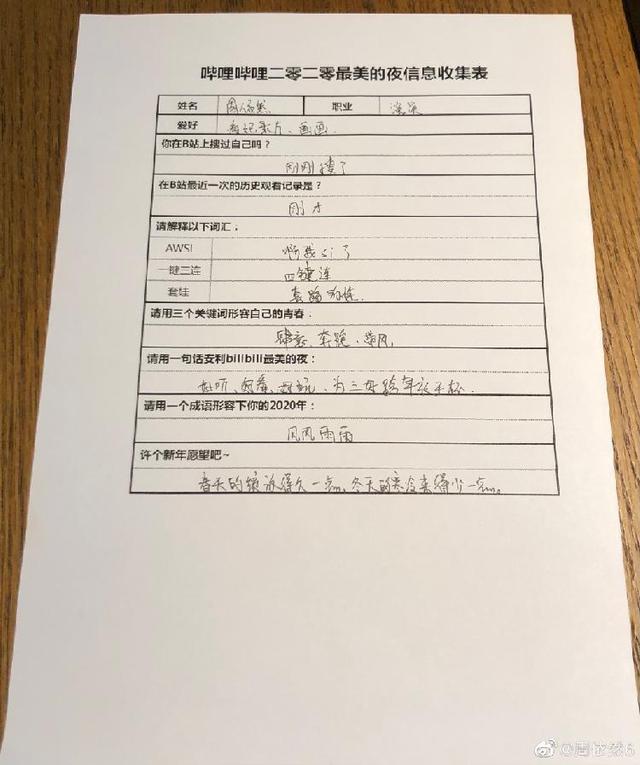 哔哩哔哩二零二零最美的夜信息收集表
姓名 周依然 职业 演员
爱好 看纪录片、画画
你在B站上搜过自己吗？
刚刚搜了
在B站最近一次的历史观看记录是？
刚才
请解释以下词汇：
AWSL 啊我si了
一键三连 四键连
套娃 套路
请用三个关键词形容自己的青春：
肆意、奔跑、追风
请用一句话安利bilibili最美的夜：
好听、好看、好玩、为三好跨年夜干杯
请用一个成语形容下你的2020年：
风风雨雨
许个新年愿望吧~
春天的绽放得久一点。冬天的寒冷来得少一点。
@周依然6